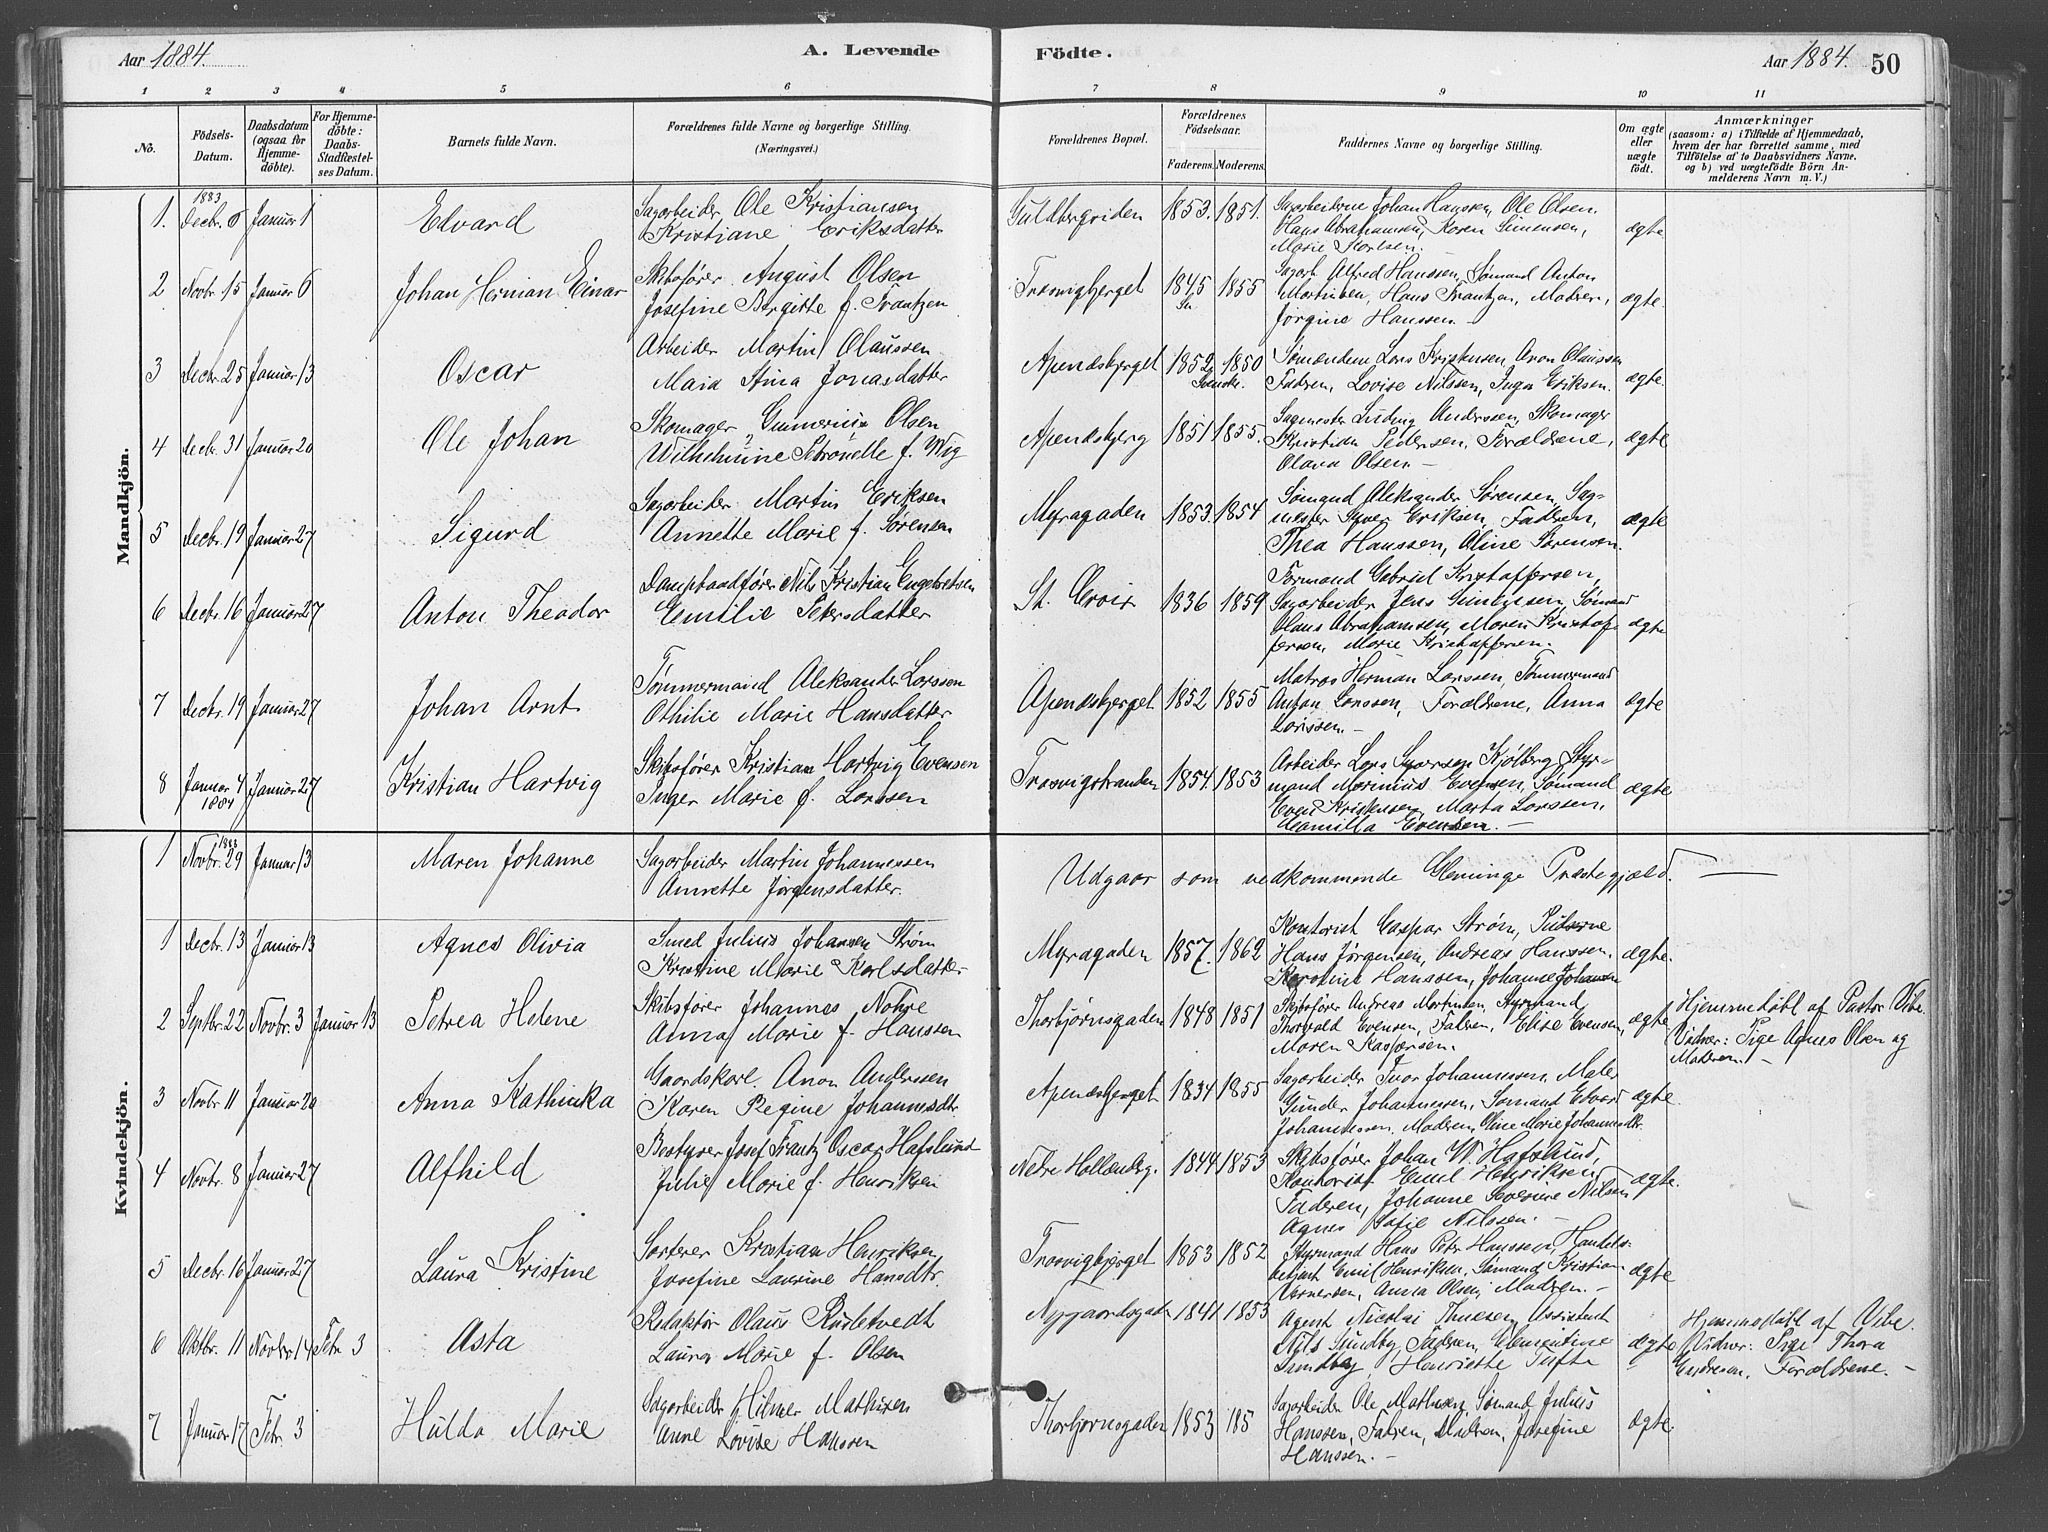 Aar 1884.
A. Levende
Födte.
Aar 1884.
50
1 2 3 4 5 6 7 8 9 10 11
No.
Födsels-
Datum.
Daabsdatum
(ogsaa for
Hjemme-
döbte).
For Hjemme-
döbte:
Daabs-
Stadfæstel-
ses Datum.
Barnets fulde Navn.
Forældrenes fulde Navne og borgerlige Stilling.
(Næringsvei.)
Forældrenes Bopæl.
Forældrenes
Födselsaar.
Faderens. Moderens.
Faddernes Navne og borgerlige Stilling.
Om ægte
eller
uægte
födt.
Anmærkninger
(saasom: a) i Tilfælde af Hjemmedaab,
hvem der har forrettet samme, med
Tilföielse af to Daabsvidners Navne,
og b) ved uægtefödte Börn An-
melderens Navn m. V.)
Mandkjön.
1883
1. Decbr. Januar 1 Edvard
Sagarbeider Ole Kristiansen
Kristiane Eriksdatter
1853. 1851.
Sagarbeiderne Johan Hanssen, Ole Olsen.
Hans Abrahamsen, Karen Simensen,
Marie
ægte
2 Novbr. 15 Januar 6 Johan Herman Einar
Skibsfører August Olsen
Josefine Bergitte f. Frantzen
Trosvigbjerget 1845 1855
Sagarb. Alfred Hanssen, Sømand Anton
Martinsen, Hans Frantzen, Moderen,
Jørgine Hanssen. -
ægte.
3 Decbr. 25 Januar 13 Oscar
Arbeider Martin Olaussen
Maia Stina Jonasdatter
Apenæsbjerget 1852 1850
Svenske.
Sømændene Lars Kristensen, Aron Olaussen
Faderen, Lovise Nilssen, Inga Eriksen.
ægte.
4 Decbr. 31 Januar 20 Ole Johan
Skomager Gunnerius Olsen
Wilhelmine Petronelle f. Wig
Apenæsbjerg 1851 1855.
Sagmester Ludvig Anderssen, Skomager
Kristian Pedersen, Forældrene,
Olava Olsen. -
ægte
5 Decbr. 19 Januar 27 Sigurd
Sagarbeider Martin Eriksen
Annette Marie f. Sørensen
Myragaden 1853. 1854
Sømand Aleksander Sørensen, Sag-
mester Syver Eriksen, Faderen,
Thea Hanssen, Oline Sørensen.
ægte
6 Decbr. 16 Januar 27 Anton Theodor
Dampbaadfører Nils Kristian Engebretsen
Emilie Petersdatter
St. Croix 1836 1859
Formand Gabriel Kristoffersen,
Sagarbeider Jens Simensen, Sømand
Hans Abrahamsen, Maren Kristof-
fersen, Marie Kristoffersen.
ægte
7 Decbr. 19 Januar 27 Johan Arnt
Tømmermand Aleksander Larssen
Othilie Marie Hansdatter
Apenæsbjerget 1852 1855
Matros Herman Larssen, Tømmermand
Anton Larssen, Forældrene, Anna
Larssen. -
ægte
8 Januar 4 Januar 27 Kristian Hartvig
1884
Skibsfører Kristian Hartvig Evensen
Inger Marie f. Larssen
Trosvigstranden 1854. 1853
Arbeider Lars Syversen Kjølberg, Styr-
mand Marinius Evensen, Sømand
Even Kristensen, Marta Larssen,
Camilla Evensen. -
ægte
Kvindekjön.
1883
1 Novbr. 29 Januar 13 Maren Johanne
Sagarbeider Martin Johannessen
Annette Jørgensdatter.
Udgaar som vedkommende Glemminge Præstegjæld.
1 Decbr. 13 Januar 13 Agnes Olivia
Smed Julius Johansen Strøm
Kristine Marie Karlsdatter
Myragaden 1857. 1862
Kontorist Caspar Strøm,
Hans Jørgensen, Andreas Hanssen,
Karoline Hanssen, Johanne Johansen
ægte.
2 Septbr. 22 Novbr. 3 Januar 13 Petrea Helene
Skibsfører Johannes Nohre
Anna Marie f. Hanssen
Thorbjørnsgaden 1848 1851
Skibsfører Andreas Martinsen, Styrmand
Thorvald Evensen, Faderen, Elise Evensen,
Maren Kaspersen.
ægte
Hjemmedøbt af Pastor Vibe.
Vidner: Pige Agnes Olsen og
Moderen. -
3 Novbr 11 Januar 20 Anna Kathinka
Gaardskarl Aron Anderssen
Karen Regine Johannesdtr
Apenæsbjerget 1834 1855
Sagarbeider Ivar Johannessen, Maler
Gunder Johannessen, Sømand Edvard
Johannessen, Moderen, Oline Marie Johannesdtr.
ægte.
4 Novbr. 8 Januar 27 Alfhild
Bestyrer Josef Frantz Oscar Hafslund
Julie Marie f. Henriksen
Nedre Hollenderg. 1844 1853
Skibsfører Johan W. Hafslund,
Kontorist Emil Henriksen,
Faderen, Johanne Severine Nilsen,
Agnes Sofie Nilssen. -
ægte.
5 Decbr. 16 Januar 27 Laura Kristine
Sorterer Kristian Henriksen,
Josefine Laurine Hansdtr.
Trosvigbjerget 1853 1852
Styrmand Hans Peter Hanssen, Handels-
betjent Emil Henriksen, Sømand Kristian
Anna Olsen, Moderen. -
ægte
6 Oktbr. 11 Novbr. 14 Febr. 3 Asta
Redaktør Olaus Rustetvedt
Laura Marie f. Olsen
Nygaardsgaden 1841 1853
Agent Nicolai Thuesen, Assistent
Nils Sundby, Faderen, Clementine
Sundby, Henriette Tufte
ægte
Hjemmedøbt af Vibe.
Vidner: Pige Thora
Endresen, Forældrene. -
7 Januar 17 Febr. 3 Hulda Marie
Sagarbeider Hilmer Mathisen
Anne Lovise Hanssen
Thorbjørnsgaden 1853 185
Sagarbeider Ole Mathisen, Sømand Julius
Hanssen, Faderen, Moderen, Josefine
Hanssen. -
ægte.